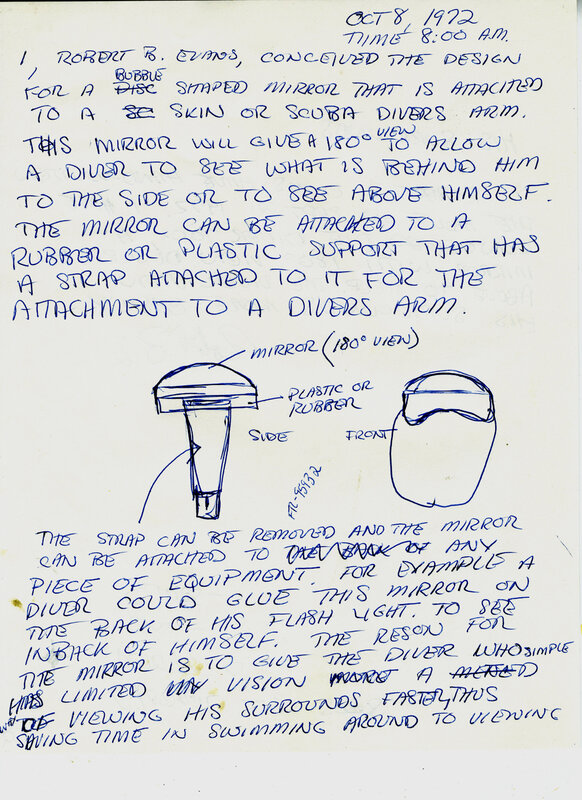 OCT 8, 1972
TIME 8:00 A.M.
I, ROBERT B. EVANS, CONCEIVED THE DESIGN
FOR A DISC BUBBLE SHAPED MIRROR THAT IS ATTACHED
TO A SC SKIN OR SCUBA DIVERS ARM.
THIS MIRROR WILL GIVE A 180° VIEW TO ALLOW
A DIVER TO SEE WHAT IS BEHIND HIM
TO THE SIDE OR TO SEE ABOVE HIMSELF.
THE MIRROR CAN BE ATTACHED TO A
RUBBER OR PLASTIC SUPPORT THAT HAS
A STRAP ATTACHED TO IT FOR THE
ATTACHMENT TO A DIVERS ARM.
MIRROR (180° VIEW)
PLASTIC OR
RUBBER
SIDE
FRONT
THE STRAP CAN BE REMOVED AND THE MIRROR
CAN BE ATTACHED TO THE BACK OF ANY
PIECE OF EQUIPMENT. FOR EXAMPLE A
DIVER COULD GLUE THIS MIRROR ON
THE BACK OF HIS FLASH LIGHT. TO SEE
INBACK OF HIMSELF. THE RESON FOR
THE MIRROR IS TO GIVE THE DIVER WHO
HAS LIMITED VISION MORE A SIMPLE
METHOD
OF VIEWING HIS SURROUNDS FASTER, THUS
SAVING TIME IN SWIMMING AROUND TO VIEWING